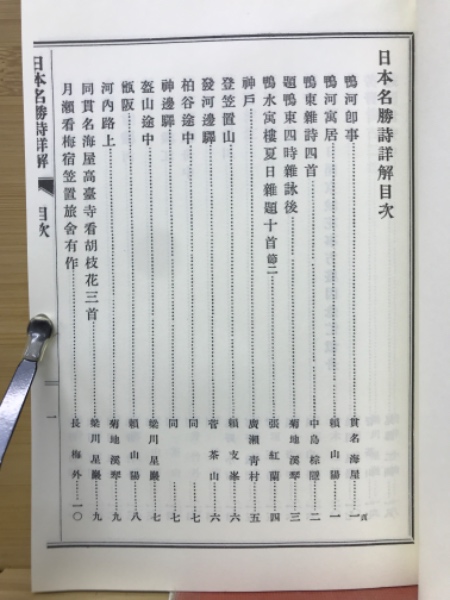 日本名勝詩詳解目次
鴨河卽事 貫名海屋 一頁
鴨河寓居 賴山陽 一
鴨東雜詩四首 中島棕隱 二
題鴨東四時雜詠後 菊地溪琴 三
鴨水寓樓夏日雜題十首節二 張紅蘭 四
神戶 廣瀨青村 五
登笠置山 賴支峯 六
發河邊驛 菅茶山 六
柏谷途中 同 七
神邊驛 同 七
盔山途中 梁川星巖 七
甑阪 賴山陽 八
河內路上 菊地溪琴 九
同貫名海屋高臺寺看胡枝花三首 梁川星巖 九
月瀨看梅宿笠置旅舍有作 長梅外 一〇
日本名勝詩詳解 目次 一